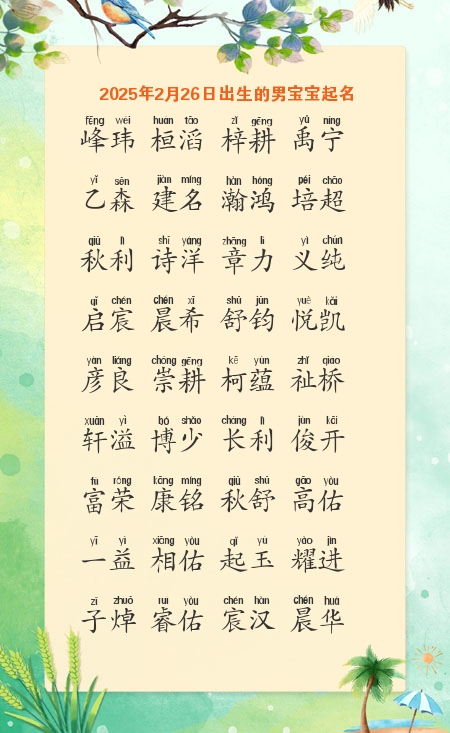 2025年2月26日出生的男宝宝起名
fēng wěi huán tāo zǐ gēng yǔ níng
峰玮 桓滔 梓耕 禹宁
yǐ sēn jiàn míng hàn hóng péi chāo
乙森 建名 瀚鸿 培超
qiū lì shī yáng zhāng lì yì chún
秋利 诗洋 章力 义纯
qǐ chén chén xī shū jūn yuè kǎi
启宸 晨希 舒钧 悦凯
yàn liáng chóng gēng kē yùn zhǐ qiáo
彦良 崇耕 柯蕴 祉桥
xuān yì bó shǎo cháng lì jùn kāi
轩溢 博少 长利 俊开
fù róng kāng míng qiū shū gāo yòu
富荣 康铭 秋舒 高佑
yī yì xiāng yòu qǐ yù yào jìn
一益 相佑 起玉 耀进
zǐ zhuō ruì yòu chén hàn chén huá
子焯 睿佑 宸汉 晨华